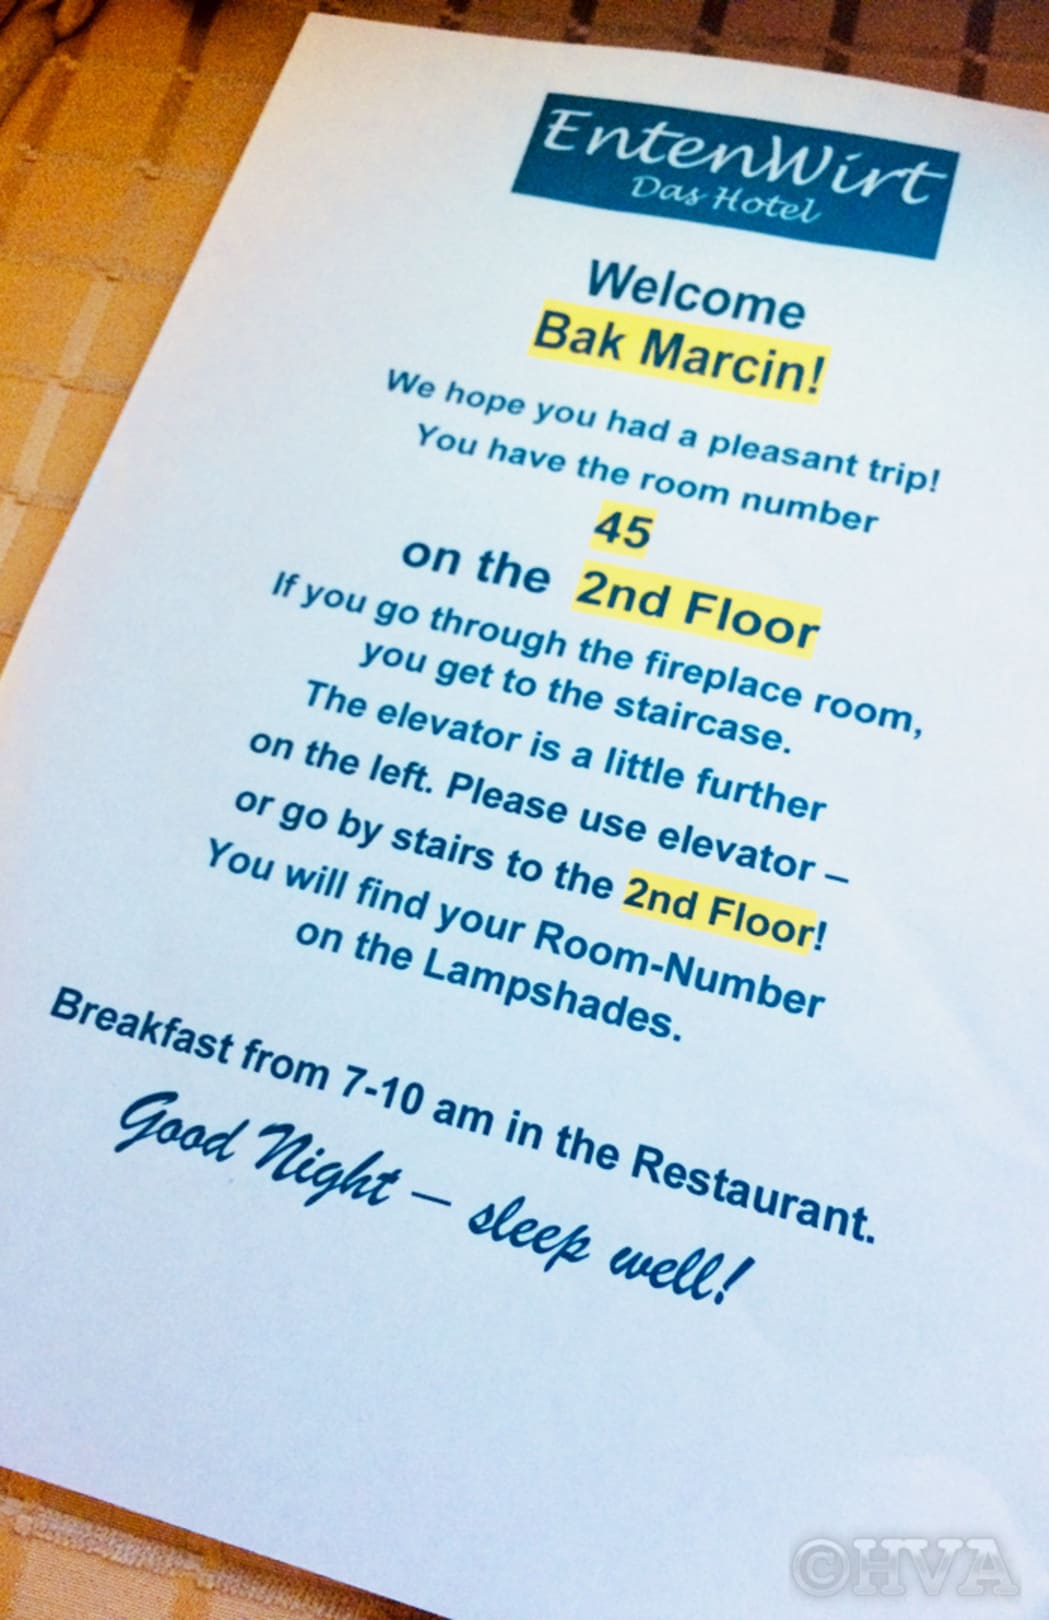 EntenWirt
Das Hotel
Welcome
Bak Marcin!
We hope you had a pleasant trip!
You have the room number
45
on the 2nd Floor
If you go through the fireplace room,
you get to the staircase.
The elevator is a little further
on the left. Please use elevator –
or go by stairs to the 2nd Floor!
You will find your Room-Number
on the Lampshades.
Breakfast from 7-10 am in the Restaurant.
Good Night – sleep well!
©HVA